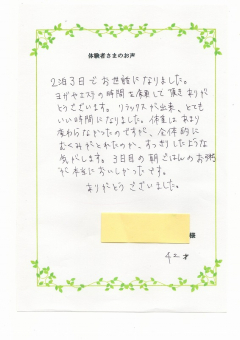 体験者さまのお声
2泊3日でお世話になりました。
ヨガやエステの時間を満喫して頂きありが
とうございます。リラックスが出来、とても
いい時間になりました。体重はあまり
変わらなかったのですが、全体的に
むくみがとれたのか、すっきりしたような
気がします。3日目の朝ごはんのお粥
が本当においしかったです。
ありがとうございました。
様
42才